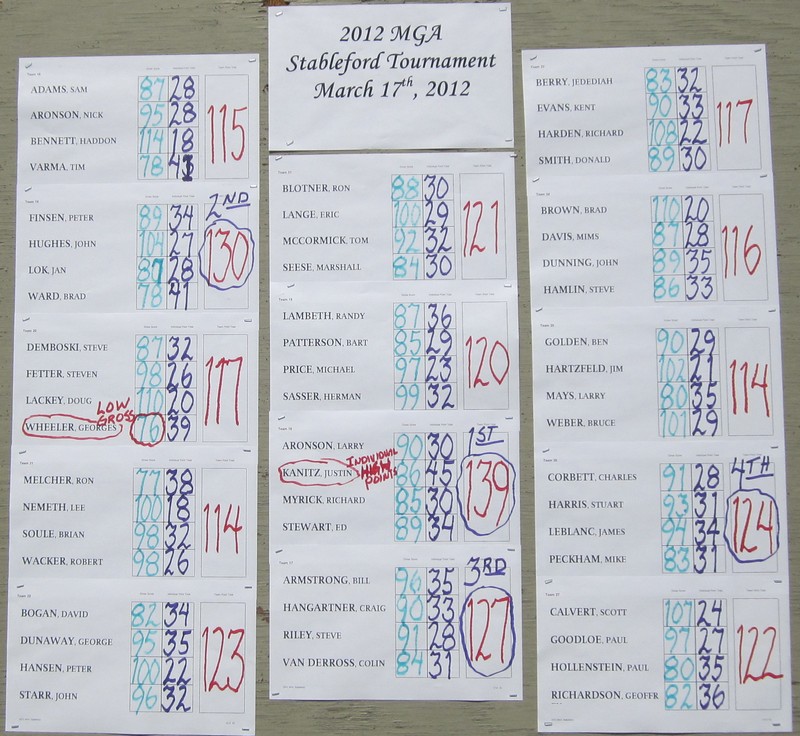 2012 MGA
Stableford Tournament
March 17th, 2012
ADAMS, SAM 87 28
ARONSON, NICK 95 28
BENNETT, HADDON 114 18
VARMA, TIM 78 41
115
FINSEN, PETER 89 34
HUGHES, JOHN 104 27
LOK, JAN 87 28
WARD, BRAD 78 41
2ND
130
DEMBOSKI, STEVE 87 32
FETTER, STEVEN 98 26
LACKEY, DOUG 110 20
LOW GROSS
WHEELER, GEORGES 76 39
117
MELCHER, RON 77 38
NEMETH, LEE 100 18
SOULE, BRIAN 98 32
WACKER, ROBERT 98 26
114
BOGAN, DAVID 82 34
DUNAWAY, GEORGE 95 35
HANSEN, PETER 100 22
STARR, JOHN 96 32
123
BLOTNER, RON 88 30
LANGE, ERIC 100 29
MCCORMICK, TOM 92 32
SEESE, MARSHALL 84 30
121
LAMBETH, RANDY 87 36
PATTERSON, BART 85 29
PRICE, MICHAEL 97 23
SASSER, HERMAN 99 32
120
ARONSON, LARRY 90 30
KANITZ, JUSTIN 45
INDIVIDUAL HIGH POINTS
MYRICK, RICHARD 85 30
STEWART, ED 89 34
1ST
139
ARMSTRONG, BILL 96 35
HANGARTNER, CRAIG 90 33
RILEY, STEVE 91 28
VAN DERROSS, COLIN 84 31
3RD
127
BERRY, JEDEDIAH 83 32
EVANS, KENT 90 33
HARDEN, RICHARD 108 22
SMITH, DONALD 89 30
117
BROWN, BRAD 110 20
DAVIS, MIMS 87 28
DUNNING, JOHN 89 35
HAMLIN, STEVE 86 33
116
GOLDEN, BEN 90 29
HARTZFELD, JIM 102 21
MAYS, LARRY 80 35
WEBER, BRUCE 101 29
114
CORBETT, CHARLES 91 28
HARRIS, STUART 93 31
LEBLANC, JAMES 94 34
PECKHAM, MIKE 83 31
4TH
124
CALVERT, SCOTT 107 24
GOODLOE, PAUL 97 27
HOLLENSTEIN, PAUL 80 35
RICHARDSON, GEOFFR 82 36
122